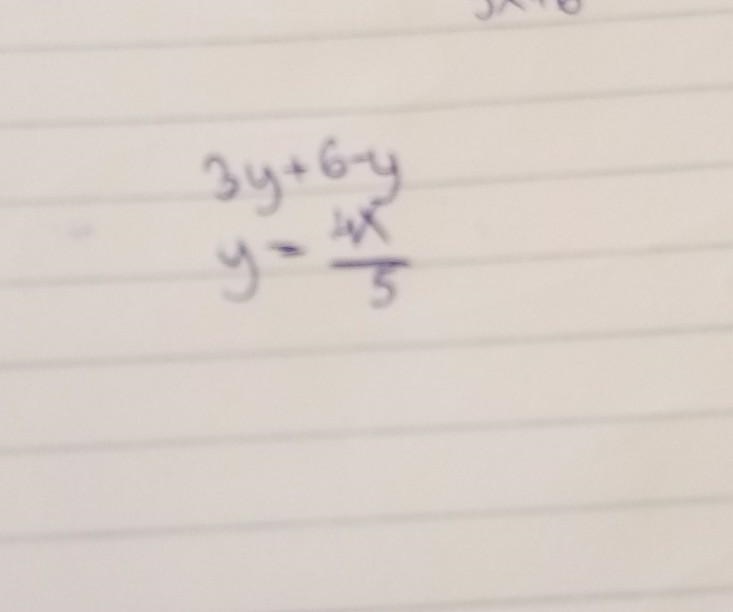 3y+6-y
y = 4x/5